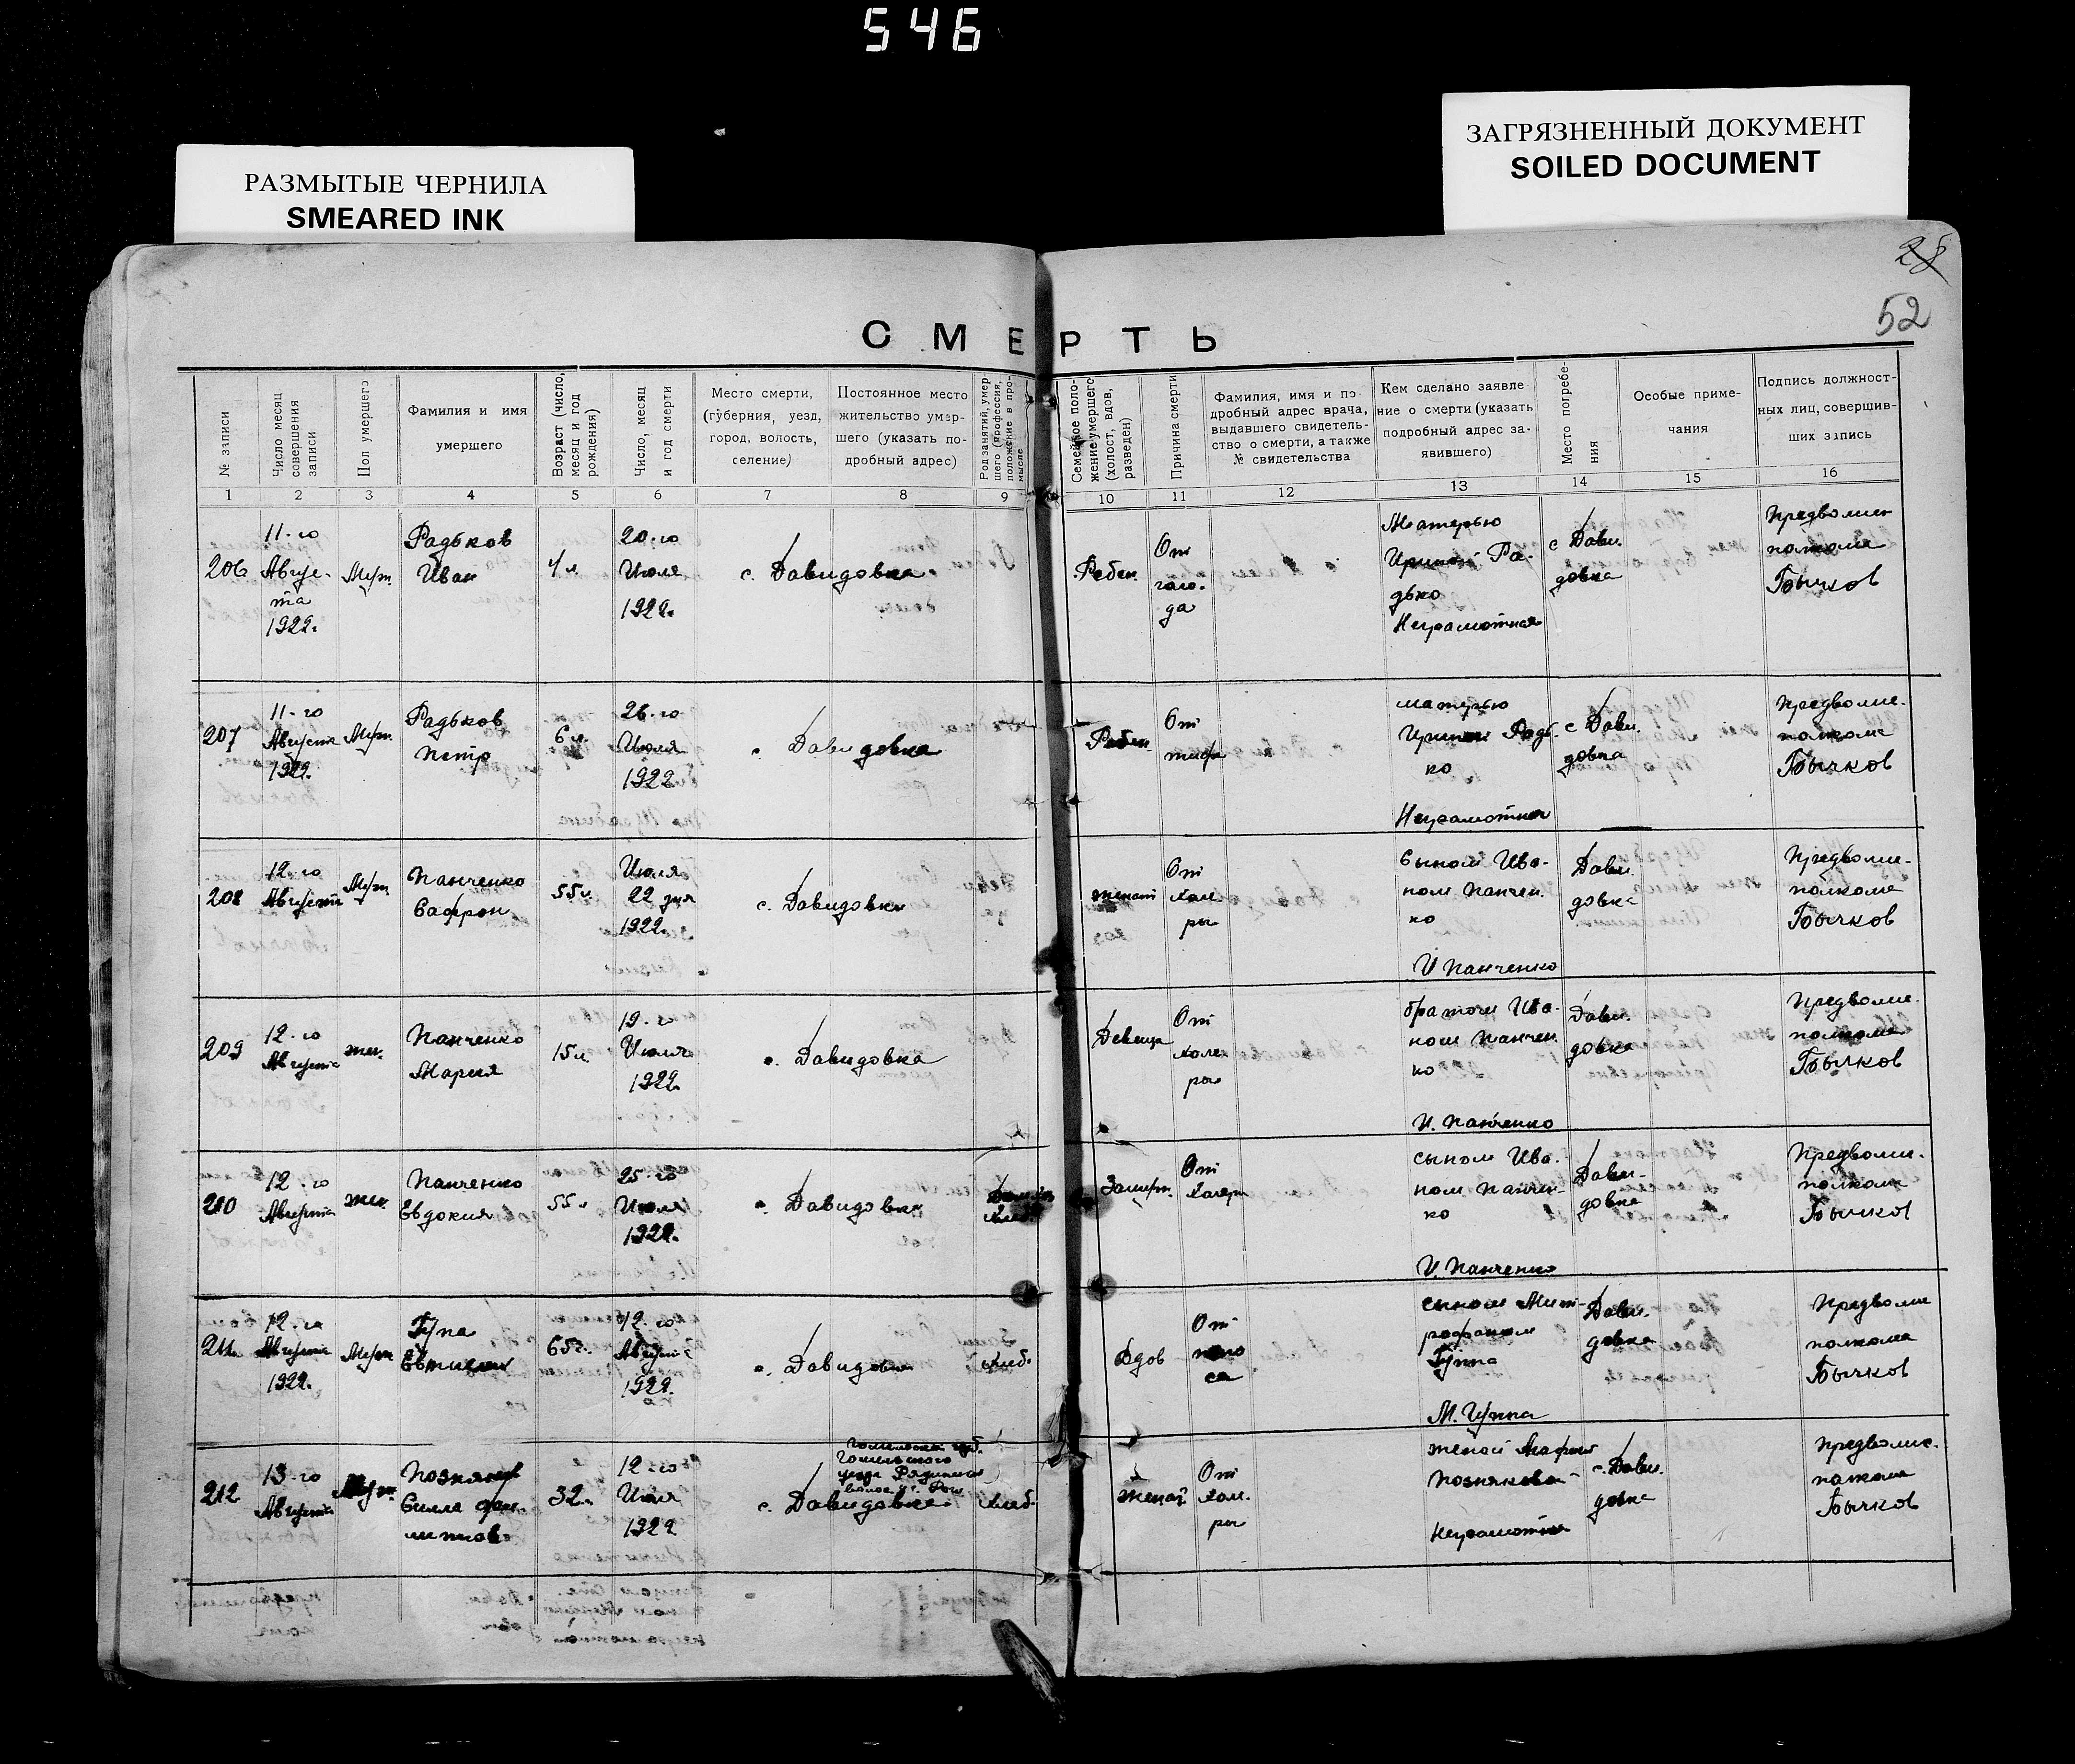 546
РАЗМЫТЫЕ ЧЕРНИЛА
SMEARED INK
ЗАГРЯЗНЕННЫЙ ДОКУМЕНТ
SOILED DOCUMENT
28
52
СМЕРТЬ
№ записи
Число месяц
совершения
записи
Пол умершего
Фамилия и имя
умершего
Возраст (число,
месяц и год
рождения)
Число, месяц
и год смерти
Место смерти,
(губерния, уезд,
город, волость,
селение)
Постоянное место
жительство умер-
шего (указать по-
дробный адрес)
Род занятий, умер-
шего (профессия,
положение в про-
мысле
Семейное поло-
жение умершего
(холост, вдов,
разведен)
Причина смерти
Фамилия, имя и по
дробный адрес врача,
выдавшего свидетель-
ство о смерти, а также
№ свидетельства
Кем сделано заявле
ние о смерти (указать
подробный адрес за-
явившего)
Место погребе-
ния
Особые приме-
чания
Подпись должност-
ных лиц, совершив-
ших запись
1 2 3 4 5 6 7 8 9 10 11 12 13 14 15 16
206
11-го
Авгус-
та
1922.
Муж.
Радьков
Иван
4 л
20-го
Июля
1922.
с. Давидовка
Ребен.
От
голо-
да
Матерью
Ириной Ра-
дько
Неграмотная
с Дави-
довка
Предволис
полкома
Бычков
207
11-го
Августа
1922.
Муж.
Радьков
Петр
6 л.
26-го
Июля
1922.
с. Давидовка
Ребен.
От
тифа
матерью
Ириной Радь-
ко
Неграмотная
с Дави-
довка
Предволис-
полкома
Бычков
208
12-го
Августа
Муж.
Панченко
Сафрон
55 л.
Июля
22 дня
1922.
с. Давидовка
женат
От
холе-
ры
Сыном Ива-
ном Панчен-
ко
И Панченко
Дави-
довка
Предволис-
полкома
Бычков
209
12-го
Августа
жен.
Панченко
Мария
15 л.
19-го
Июля
1922.
с. Давидовка
Девица
От
холе-
ры
братом Ива-
ном Панчен
ко
И. Панченко
Дави-
довка
Предволис-
полкома
Бычков
210
12-го
Августа
жен.
Панченко
Евдокия
55 л
25-го
Июля
1922.
с. Давидовка
Замуж.
От
холеры
сыном Ива-
ном Панчен-
ко
И. Панченко
Дави-
довка
Предволис-
полкома
Бычков
211
12-го
Августа
1922.
Муж
65 г.
12-го
Августа
1922.
с. Давидовка
Хлеб.
Вдов
От
поно
са
сыном Мит-
рофаном
Дави-
довка
Предволис
полкома
Бычков
212
13-го
Августа
Муж.
32 г.
12-го
Июля
1922
Гомельской губ.
Гомельского
уезда
с. Давидовка
Хлеб.
женат
От
холе-
ры
женой
Позняковой
Неграмотная
с. Дави-
довка
Предволис-
полкома
Бычков